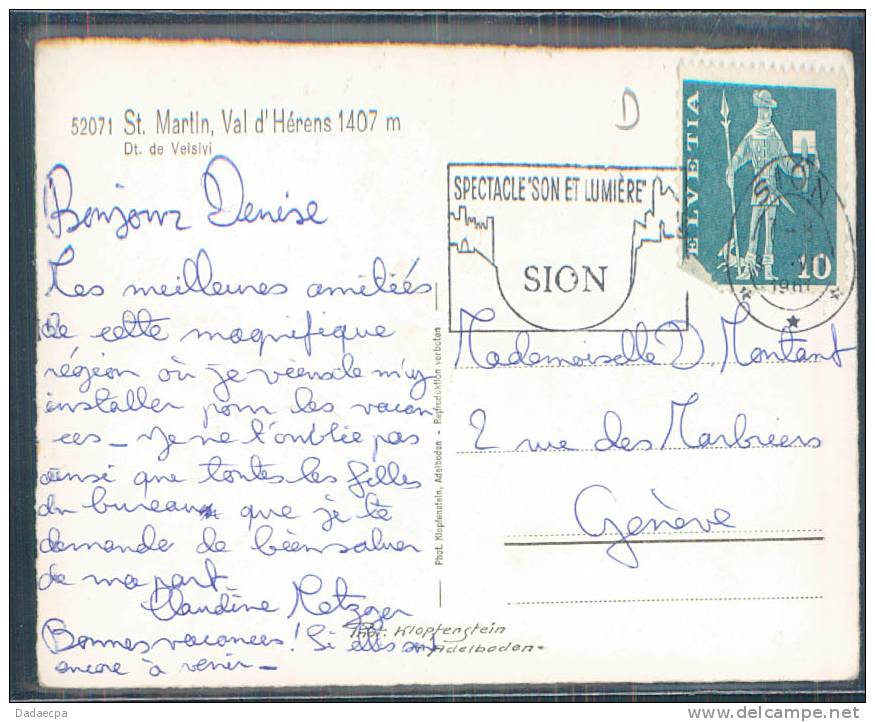 52071 St. Martin, Val d'Hérens 1407 m
Dt. de Veisivi
Bonjour Denise
Mes meilleures amitiés
de cette magnifique
région où je viens de m'y
installer pour les vacan
ces - Je ne t'oublie pas
ainsi que toutes les filles
du bureau que je te
demande de bien saluer
de ma part.
Claudine Metzger
Bonnes vacances! Si elles sont
encore à venir -
Phot. Klopfenstein, Adelboden - Reproduktion verboten
Phot. Klopfenstein
Adelboden
D
SPECTACLE "SON ET LUMIÈRE"
SION
HELVETIA
10
SION
Mademoiselle D. Montant
2 rue des Marbriers
Genève
Dadaecpa
www.delcampe.net